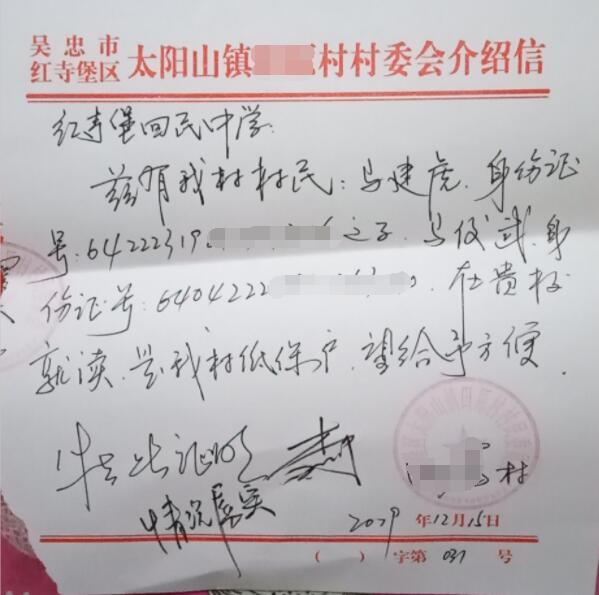 吴忠市
红寺堡区 太阳山镇 村村委会介绍信
红寺堡回民中学:
兹有我村村民:马建虎,身份证
号:64222319 之子,马俊武,身
份证号:6404222 ,在贵校
就读,是我村低保户,望给予方便.
特此证明
情况属实
村
2019年12月15日
( )字第 031 号